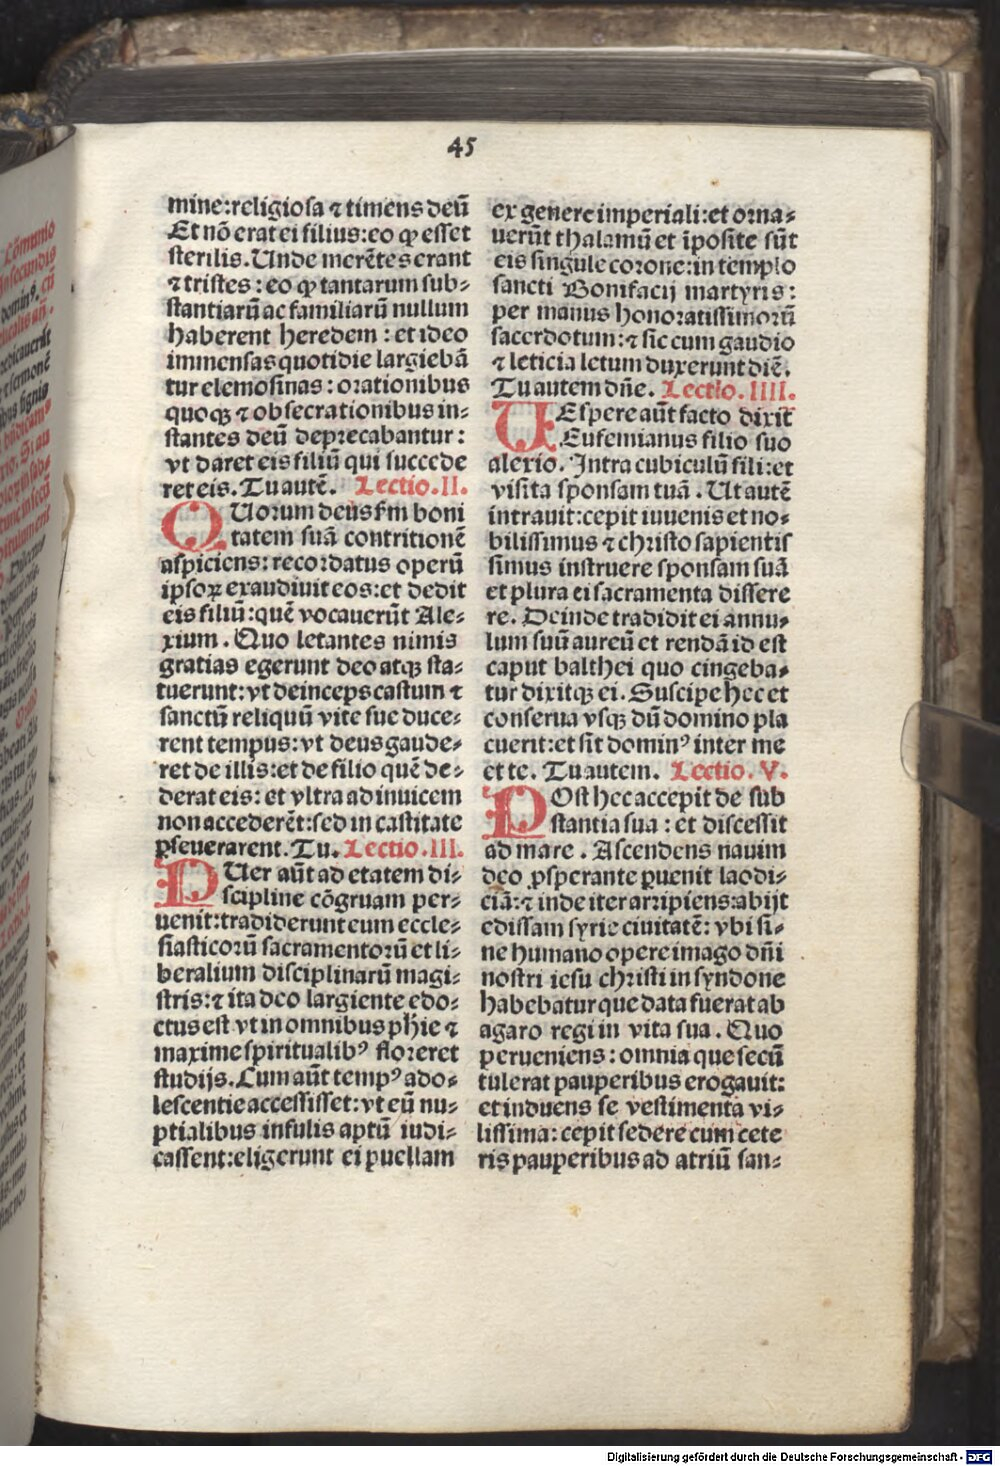 45
mine:religiosa ⁊ timens deū
Et nō erat ei filius:eo ꝙ esset
sterilis.Unde merētes erant
⁊ tristes : eo ꝙ tantarum sub⸗
stantiarū ac familiarū nullum
haberent heredem : et ideo
immensas quotidie largiebā
tur elemosinas : orationibus
quoqꝫ ⁊ obsecrationibus in⸗
stantes deū deprecabantur :
vt daret eis filiū qui succede
ret eis. Tu autē. Lectio.II.
QUorum deus ẜm boni
tatem suā contritionē
aspiciens: recordatus operū
ipsoꝝ exaudiuit eos:et dedit
eis filiū:quē vocauerūt Ale⸗
xium . Quo letantes nimis
gratias egerunt deo atqꝫ sta⸗
tuerunt: vt deinceps castum ⁊
sanctū reliquū vite sue duce⸗
rent tempus: vt deus gaude⸗
ret de illis:et de filio quē de⸗
derat eis: et vltra ad inuicem
non accederēt:sed in castitate
ꝑseuerarent. Tu. Lectio.III.
PUer aūt ad etatem di⸗
scipline cōgruam per⸗
uenit:tradiderunt eum eccle⸗
siasticorū sacramentorū et li⸗
beralium disciplinarū magi⸗
stris:⁊ ita deo largiente edo⸗
ctus est vt in omnibus phīe ⁊
maxime spiritualibꝰ floreret
studijs. Cum aūt tempꝰ ado⸗
lescentie accessisset: vt eū nu⸗
ptialibus infulis aptū iudi⸗
cassent:eligerunt ei puellam
ex genere imperiali:et orna⸗
uerūt thalamū et īposite sūt
eis singule corone:in templo
sancti Bonifacij martyris :
per manus honoratissimorū
sacerdotum:⁊ sic cum gaudio
⁊ leticia letum duxerunt diē.
Tu autem dn̄e. Lectio. IIII.
UEspere aūt facto dixit
Eufemianus filio suo
alexio. Intra cubiculū fili:et
visita sponsam tuā . Ut autē
intrauit:cepit iuuenis et no⸗
bilissimus ⁊ christo sapientis
simus instruere sponsam suā
et plura ei sacramenta dissere
re. Deinde tradidit ei annu⸗
lum suū aureū et rendā id est
caput balthei quo cingeba⸗
tur dixitqꝫ ei. Suscipe hec et
conserua vsqꝫ dū domino pla
cuerit:et sit dominꝰ inter me
et te. Tu autem. Lectio. V.
POst hec accepit de sub
stantia sua : et discessit
ad mare . Ascendens nauim
deo ꝓsperante ꝑuenit laodi⸗
ciā:⁊ inde iter arripiens:abijt
edissam syrie ciuitatē: vbi si⸗
ne humano opere imago dn̄i
nostri iesu christi in syndone
habebatur que data fuerat ab
agaro regi in vita sua . Quo
perueniens : omnia que secū
tulerat pauperibus erogauit:
et induens se vestimenta vi⸗
lissima: cepit sedere cum cete
ris pauperibus ad atriū san⸗
Digitalisierung gefördert durch die Deutsche Forschungsgemeinschaft - DFG